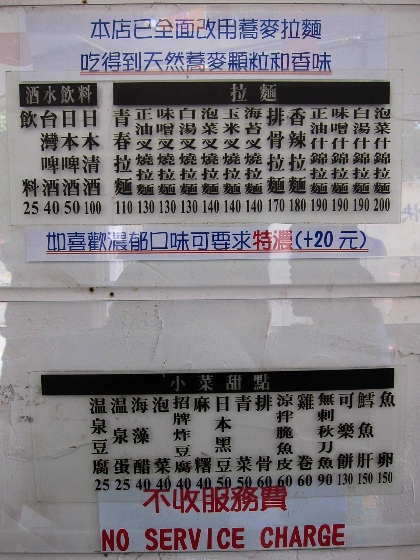 本店已全面改用蕎麥拉麵
吃得到天然蕎麥顆粒和香味
酒水飲料
飲料25
台灣啤酒40
日本啤酒50
日本清酒100
拉麵
青春拉麵110
正油叉燒拉麵130
味噌叉燒拉麵130
白湯叉燒拉麵130
泡菜叉燒拉麵140
玉米叉燒拉麵140
海苔叉燒拉麵140
排骨拉麵170
香辣拉麵180
正油什錦拉麵190
味噌什錦拉麵190
白湯什錦拉麵190
泡菜什錦拉麵200
如喜歡濃郁口味可要求特濃(+20元)
小菜甜點
温泉豆腐25
温泉蛋25
海藻醋40
泡菜40
招牌炸豆腐40
麻糬40
日本黑豆50
青菜50
排骨60
涼拌脆魚皮60
雞卷60
無刺秋刀魚90
可樂餅130
鱈魚肝150
魚卵150
不收服務費
NO SERVICE CHARGE